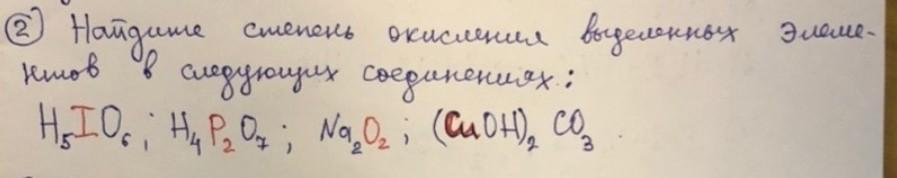 ② Найдите степень окисления выделенных элеме-
нтов в следующих соединениях:
H₅IO₆; H₄P₂O₇; Na₂O₂; (CuOH)₂ CO₃.